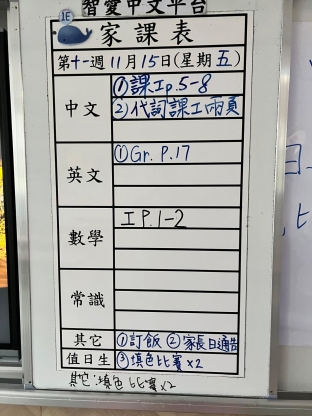 智愛中文平台
1E
家課表
第十一週 11月15日(星期五)
中文
①課工p.5-8
②代詞課工兩頁
英文
①Gr. P.17
數學
工P.1-2
常識
其它
①訂飯 ②家長日通告
值日生
③填色比賽x2
其它:填色比賽x2